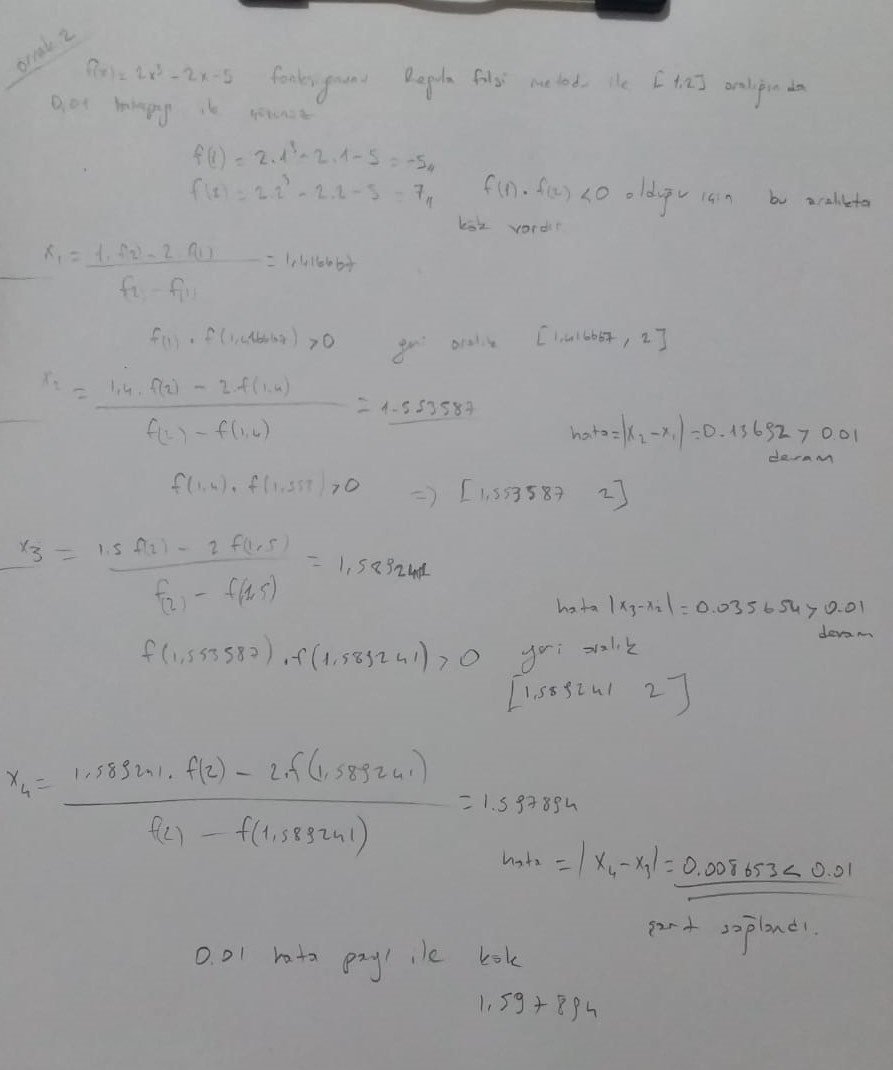 örnek 2
f(x) = 2x³ - 2x - 5 fonksiyonunu Regula falsi metodu ile [1,2] aralığında
0,01 hata payı ile çözünüz
f(1) = 2.1³ - 2.1 - 5 = -5,,
f(2) = 2.2³ - 2.2 - 5 = 7,, f(1).f(2) < 0 olduğu için bu aralıkta
kök vardır
x₁ = (1.f(2) - 2.f(1)) / (f(2) - f(1)) = 1,416667
f(1).f(1,416667) > 0 yeni aralık [1,416667, 2]
x₂ = (1,4.f(2) - 2f(1,4)) / (f(2) - f(1,4)) = 1.553587
hata = |x₂ - x₁| = 0.13692 > 0.01
devam
f(1,4).f(1,553) > 0 => [1,553587 2]
x3 = (1.5 f(2) - 2 f(1,5)) / (f(2) - f(1,5)) = 1,589241
hata |x₃ - x₂| = 0.035654 > 0.01
devam
f(1,553587).f(1,589241) > 0 yeni aralık
[1,589241 2]
x₄ = (1,589241.f(2) - 2.f(1,589241)) / (f(2) - f(1,589241)) = 1.597894
hata = |x₄ - x₃| = 0.008653 < 0.01
şart sağlandı.
0.01 hata payı ile kök
1,597894